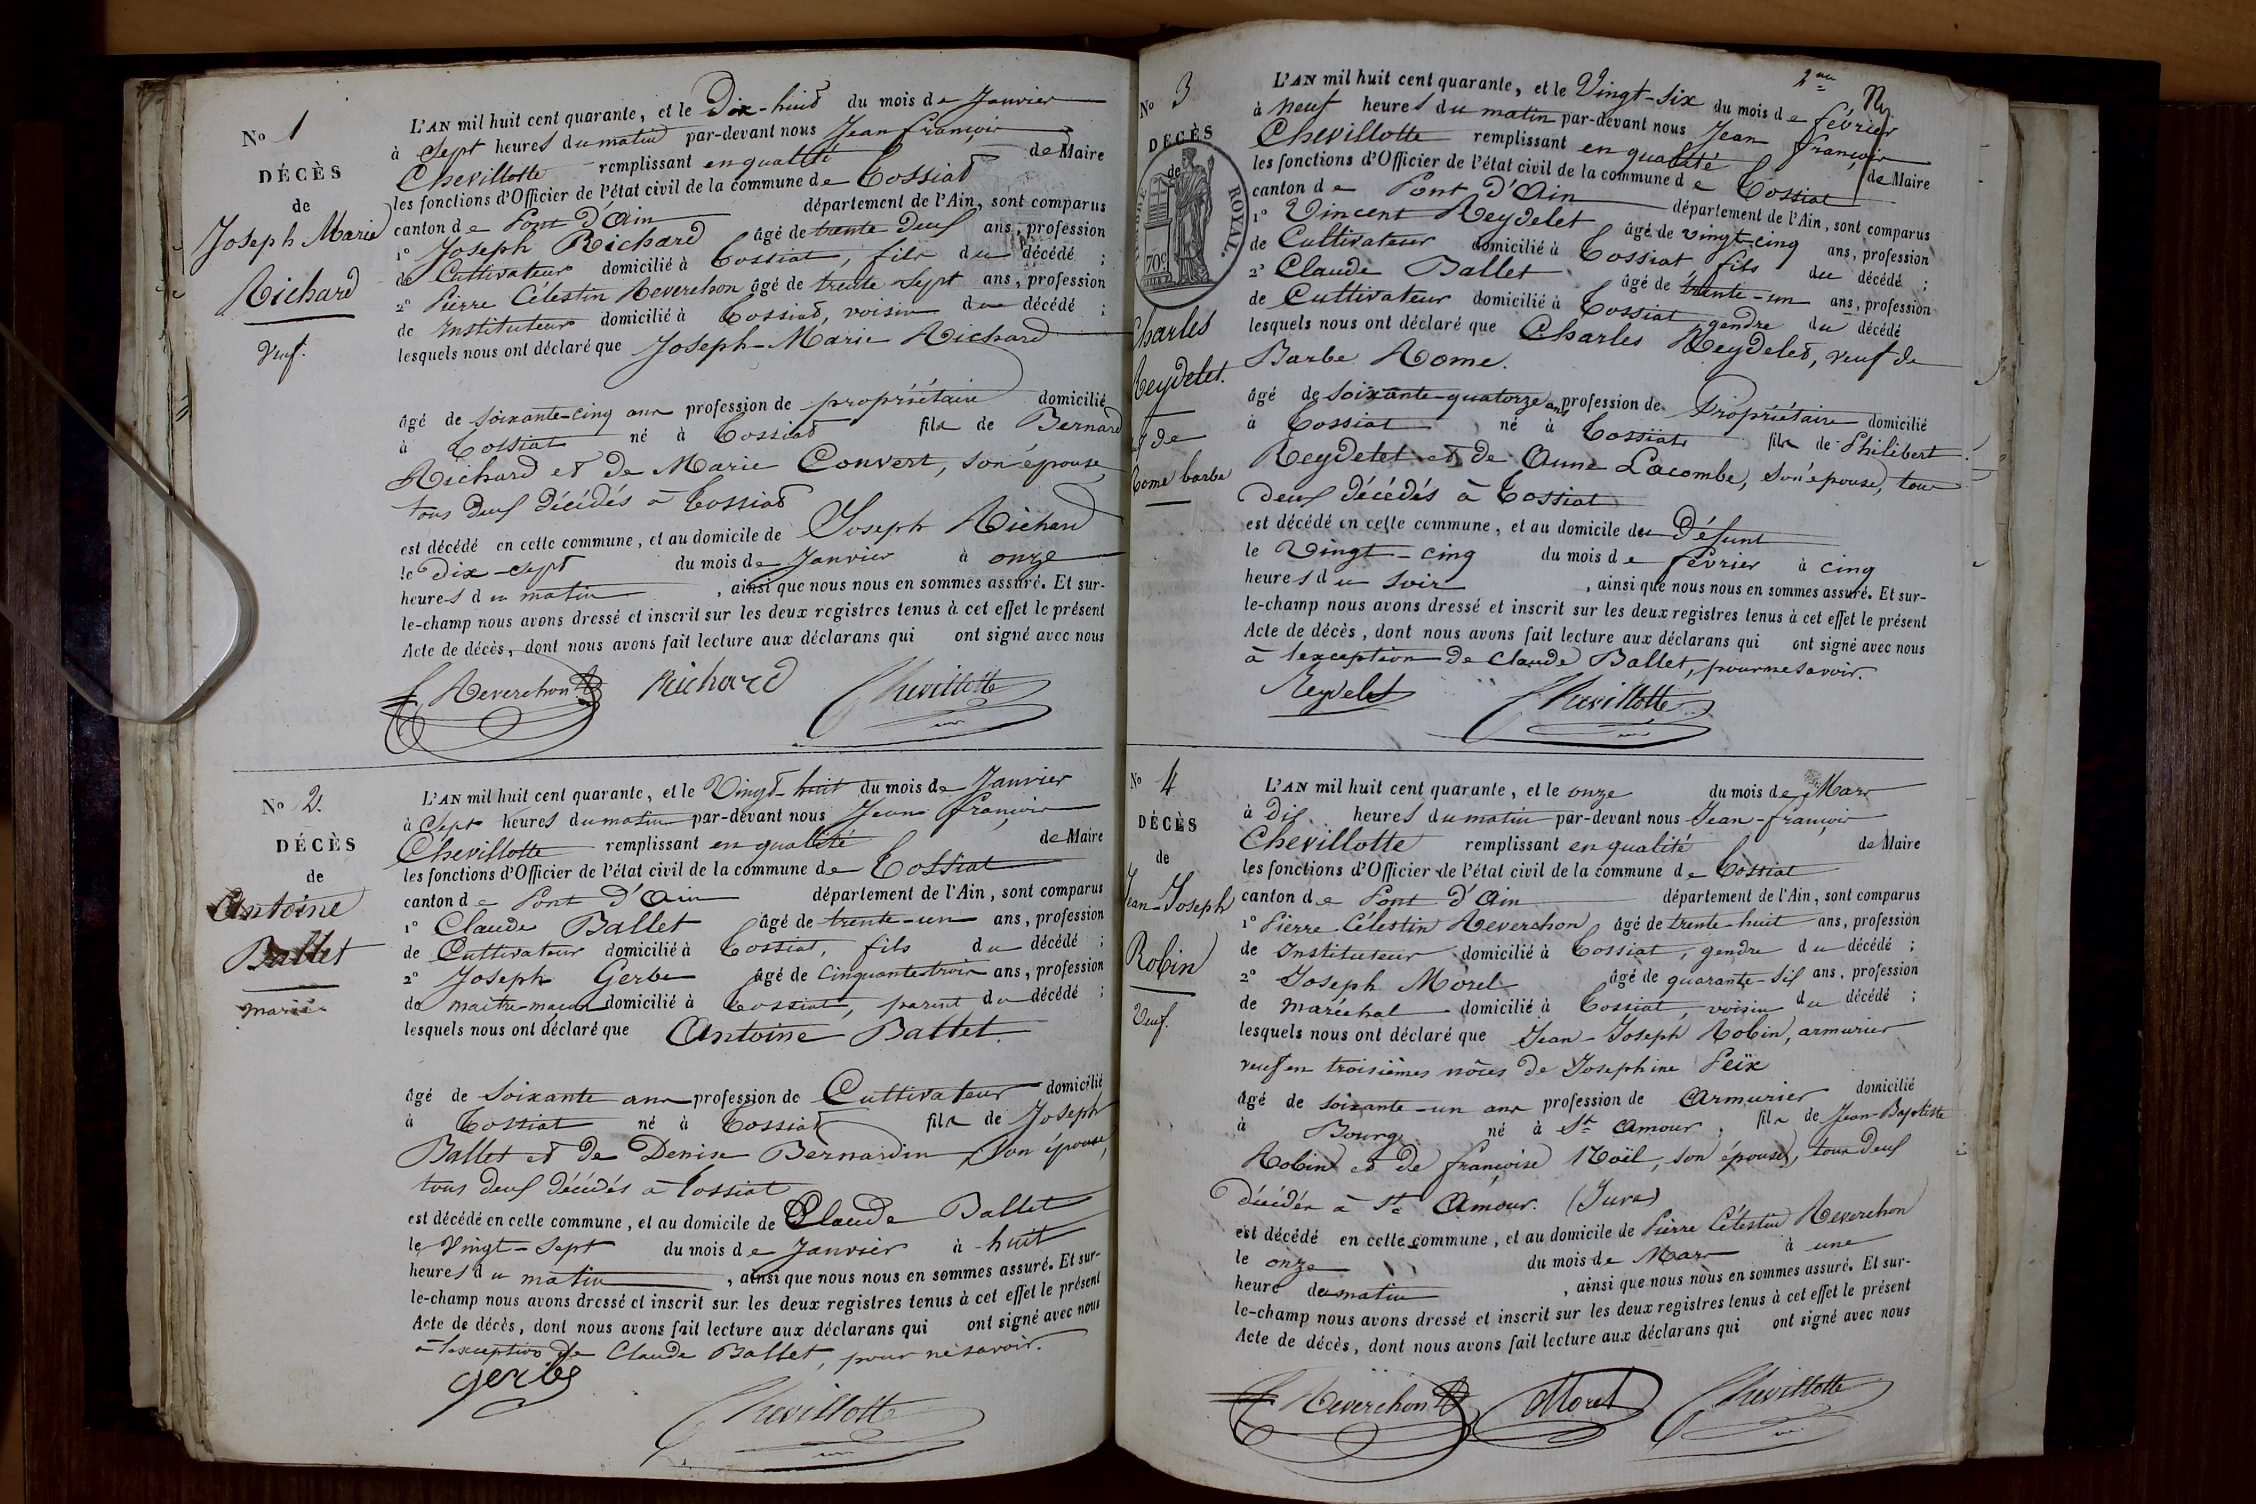 No 1
DÉCÈS
de
Joseph Marie
Richard
Veuf.
L'AN mil huit cent quarante, et le Dix-huit du mois de Janvier
à Sept heures du matin par-devant nous Jean françois
Chevillotte remplissant en qualité de Maire
les fonctions d'Officier de l'état civil de la commune de Tossiat
canton de Pont d'Ain département de l'Ain, sont comparus
1° Joseph Richard âgé de trente deux ans, profession
de Cultivateur domicilié à Tossiat, fils du décédé ;
2° Pierre Célestin Reverchon âgé de trente sept ans, profession
de Instituteur domicilié à Tossiat, voisin du décédé ;
lesquels nous ont déclaré que Joseph-Marie Richard
âgé de soixante-cinq ans profession de propriétaire domicilié
à Tossiat né à Tossiat fils de Bernard
Richard et de Marie Convert, son épouse
tous deux décédés à Tossiat
est décédé en cette commune, et au domicile de Joseph Richard
le dix-sept du mois de Janvier à onze
heures du matin , ainsi que nous nous en sommes assuré. Et sur-
le-champ nous avons dressé et inscrit sur les deux registres tenus à cet effet le présent
Acte de décès, dont nous avons fait lecture aux déclarans qui ont signé avec nous
Reverchon Richard Chevillotte
No 2.
DÉCÈS
de
Antoine
Ballet
marié
L'AN mil huit cent quarante, et le Vingt-huit du mois de Janvier
à Sept heures du matin par-devant nous Jean françois
Chevillotte remplissant en qualité de Maire
les fonctions d'Officier de l'état civil de la commune de Tossiat
canton de Pont d'Ain département de l'Ain, sont comparus
1° Claude Ballet âgé de trente-un ans, profession
de Cultivateur domicilié à Tossiat, fils du décédé ;
2° Joseph Gerbe âgé de Cinquante trois ans, profession
de maître-maçon domicilié à Tossiat, parent du décédé ;
lesquels nous ont déclaré que Antoine Ballet.
âgé de soixante ans profession de Cultivateur domicilié
à Tossiat né à Tossiat fils de Joseph
Ballet et de Denise Bernardin, son épouse,
tous deux décédés à Tossiat
est décédé en cette commune, et au domicile de Claude Ballet
le Vingt-sept du mois de Janvier à huit
heures du matin , ainsi que nous nous en sommes assuré. Et sur-
le-champ nous avons dressé et inscrit sur les deux registres tenus à cet effet le présent
Acte de décès, dont nous avons fait lecture aux déclarans qui ont signé avec nous
à l'exception de Claude Ballet, pour ne savoir.
Gerbe
Chevillotte
No 3
DÉCÈS
de
ROYAL.
70c
Charles
Reydelet.
et de
Rome barbe
L'AN mil huit cent quarante, et le Vingt-six du mois de février
à neuf heures du matin par-devant nous Jean françois
Chevillotte remplissant en qualité de Maire
les fonctions d'Officier de l'état civil de la commune de Tossiat
canton de Pont d'Ain département de l'Ain, sont comparus
1° Vincent Reydelet âgé de vingt-cinq ans, profession
de Cultivateur domicilié à Tossiat fils du décédé ;
2° Claude Ballet âgé de trente-un ans, profession
de Cultivateur domicilié à Tossiat gendre du décédé
lesquels nous ont déclaré que Charles Reydelet, veuf de
Barbe Rome.
âgé de soixante-quatorze ans profession de Propriétaire domicilié
à Tossiat né à Tossiat fils de Philibert
Reydelet et de Anne Lacombe, son épouse, tous
deux décédés à Tossiat
est décédé en cette commune, et au domicile du Défunt
le Vingt-cinq du mois de février à cinq
heures du soir , ainsi que nous nous en sommes assuré. Et sur-
le-champ nous avons dressé et inscrit sur les deux registres tenus à cet effet le présent
Acte de décès, dont nous avons fait lecture aux déclarans qui ont signé avec nous
à l'exception de Claude Ballet, pour ne savoir.
Reydelet Chevillotte
No 4
DÉCÈS
de
Jean-Joseph
Robin
Veuf.
L'AN mil huit cent quarante, et le onze du mois de Mars
à Dix heures du matin par-devant nous Jean-françois
Chevillotte remplissant en qualité de Maire
les fonctions d'Officier de l'état civil de la commune de Tossiat
canton de Pont d'Ain département de l'Ain, sont comparus
1° Pierre Célestin Reverchon âgé de trente-huit ans, profession
de Instituteur domicilié à Tossiat, gendre du décédé ;
2° Joseph Morel âgé de quarante-six ans, profession
de maréchal domicilié à Tossiat, voisin du décédé ;
lesquels nous ont déclaré que Jean-Joseph Robin, armurier
veuf en troisièmes nôces de Josephine Peïx
âgé de soixante-un ans profession de Armurier domicilié
à Bourg né à St Amour, fils de Jean-Baptiste
Robin et de françoise Noël, son épouse, tous deux
décédés à St Amour. (Jura)
est décédé en cette commune, et au domicile de Pierre Célestin Reverchon
le onze du mois de Mars à une
heure du matin , ainsi que nous nous en sommes assuré. Et sur-
le-champ nous avons dressé et inscrit sur les deux registres tenus à cet effet le présent
Acte de décès, dont nous avons fait lecture aux déclarans qui ont signé avec nous
Reverchon Morel Chevillotte